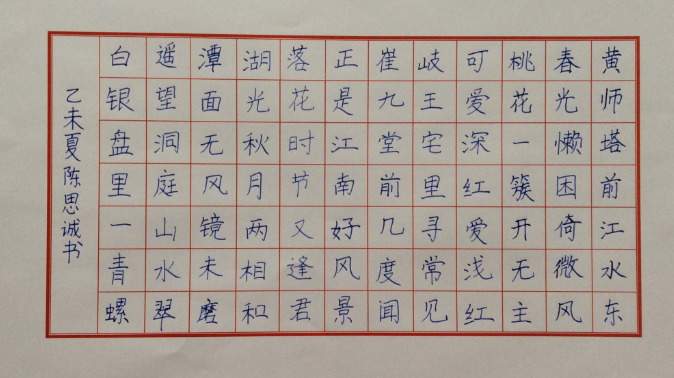 黄师塔前江水东
春光懒困倚微风
桃花一簇开无主
可爱深红爱浅红
岐王宅里寻常见
崔九堂前几度闻
正是江南好风景
落花时节又逢君
湖光秋月两相和
潭面无风镜未磨
遥望洞庭山水翠
白银盘里一青螺
乙未夏陈思诚书